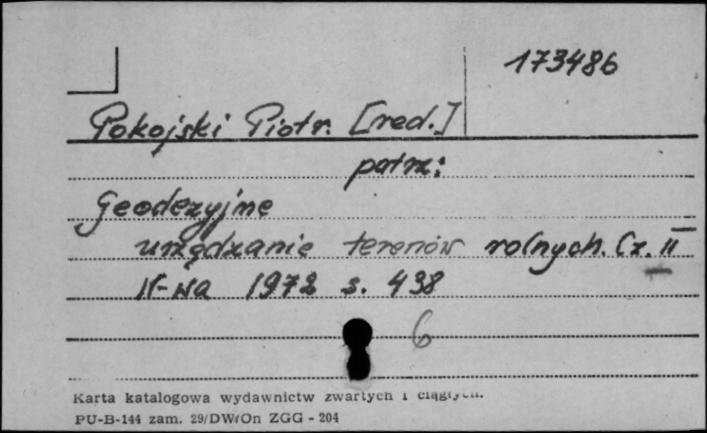 173486
Pokojski Piotr. [red.]
patrz:
Geodezyjne
urządzanie terenów rolnych. Cz. II
W-wa 1972 s. 438
6
Karta katalogowa wydawnictw zwartych i ciągłych.
PU-B-144 zam. 29/DWiOn ZGG - 204